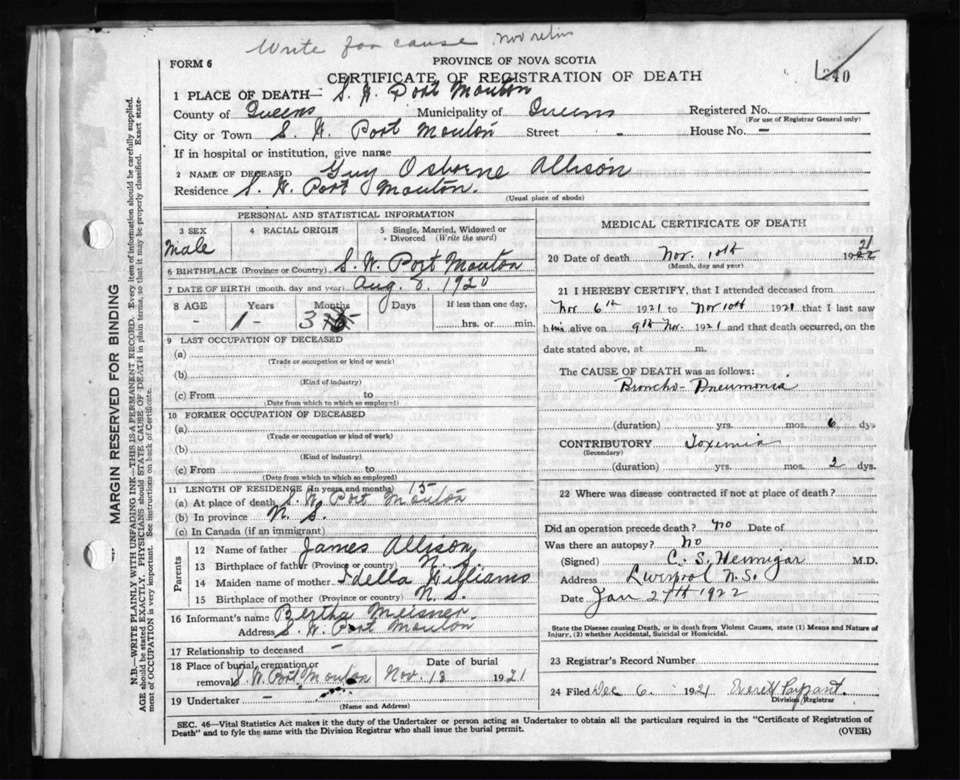 Write for cause Nov
FORM 6
PROVINCE OF NOVA SCOTIA
CERTIFICATE OF REGISTRATION OF DEATH
340
1 PLACE OF DEATH— S. W. Port Mouton
County of Queens Municipality of Queens Registered No.
(For use of Registrar General only)
City or Town S. W. Port Mouton Street - House No. –
If in hospital or institution, give name
2 NAME OF DECEASED Guy Osborne Allison
Residence S. W. Port Mouton.
(Usual place of abode)
PERSONAL AND STATISTICAL INFORMATION
3 SEX 4 RACIAL ORIGIN 5 Single, Married, Widowed or Divorced (Write the word)
Male
6 BIRTHPLACE (Province or Country) S. W. Port Mouton
7 DATE OF BIRTH (month, day and year) Aug. 8. 1920
8 AGE Years Months Days If less than one day,
- 1 - 3 hrs. or min.
9 LAST OCCUPATION OF DECEASED
(a)
(Trade or occupation or kind or work)
(b)
(Kind of industry)
(c) From to
(Date from which to which so employed)
10 FORMER OCCUPATION OF DECEASED
(a)
(Trade or occupation or kind of work)
(b)
(Kind of industry)
(c) From to
(Date from which to which so employed)
11 LENGTH OF RESIDENCE (In years and months) 15
(a) At place of death S. W. Port Mouton
(b) In province N. S.
(c) In Canada (if an immigrant)
Parents
12 Name of father James Allison
13 Birthplace of father (Province or country) N. S.
14 Maiden name of mother Idella Williams
15 Birthplace of mother (Province or country) N. S.
16 Informant's name Bertha Meisner
Address S. W. Port Mouton
17 Relationship to deceased –
18 Place of burial, cremation or removal S. W. Port Mouton Date of burial Nov. 13 1921
19 Undertaker -
(Name and Address)
MEDICAL CERTIFICATE OF DEATH
20 Date of death Nov. 10th 1922 21
(Month, day and year)
21 I HEREBY CERTIFY, that I attended deceased from
Nov 6th 1921 to Nov 10th 1921 that I last saw
him alive on 9th Nov. 1921 and that death occurred, on the
date stated above, at m.
The CAUSE OF DEATH was as follows:
Broncho-Pneumonia
(duration) yrs. mos. 6 dys
CONTRIBUTORY Toxemia
(Secondary)
(duration) yrs. mos. 2 dys.
22 Where was disease contracted if not at place of death?
Did an operation precede death? no Date of
Was there an autopsy? No
(Signed) C. S. Hennigar M.D.
Address Liverpool N.S.
Date Jan 27th 1922
State the Disease causing Death, or in death from Violent Causes, state (1) Means and Nature of
Injury, (2) whether Accidental, Suicidal or Homicidal.
23 Registrar's Record Number
24 Filed Dec 6. 1921 Everett
Division Registrar
SEC. 46—Vital Statistics Act makes it the duty of the Undertaker or person acting as Undertaker to obtain all the particulars required in the "Certificate of Registration of
Death" and to fyle the same with the Division Registrar who shall issue the burial permit.
(OVER)
MARGIN RESERVED FOR BINDING
N.B.—WRITE PLAINLY WITH UNFADING INK—THIS IS A PERMANENT RECORD. Every item of information should be carefully supplied.
AGE should be stated EXACTLY. PHYSICIANS should STATE CAUSE OF DEATH in plain terms, so that it may be properly classified. Exact state-
ment of OCCUPATION is very important. See instructions on back of Certificate.